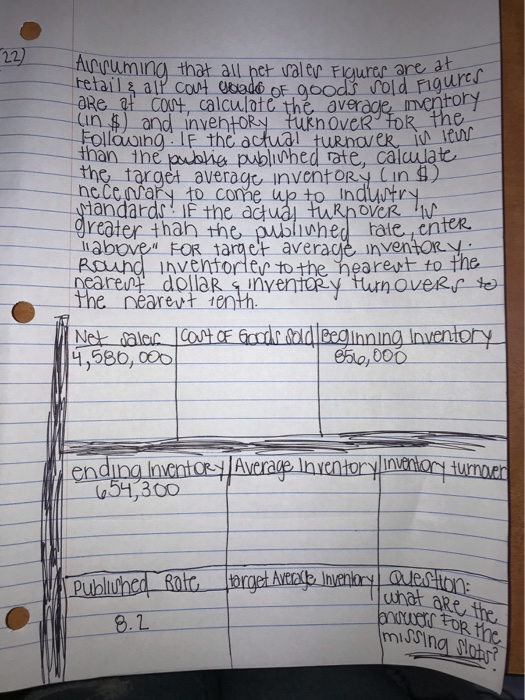 22)
Assuming that all net sales Figures are at
retail & all cost OF goods sold Figures
aRe at cost, calculate the average inventory
(in $) and inventoRy turnoveR foR the
Following. IF the actual turnover is less
than the published rate, calculate
the target average inventory (in $)
necessary to come up to industry
standards. IF the actual tuRnover is
greater than the published rate, enter
"above" FOR target average inventory.
Round inventories to the nearest to the
nearest dollar & inventoRy turnoveRs to
the nearest tenth.
Net sales | Cost OF Goods Sold | Beginning Inventory
4,580,000 856,000
ending InventoRy | Average Inventory | inventory turnover
654,300
Published Rate | target Average Inventory | Question:
what aRe the
8.2 answers FoR the
missing slots?